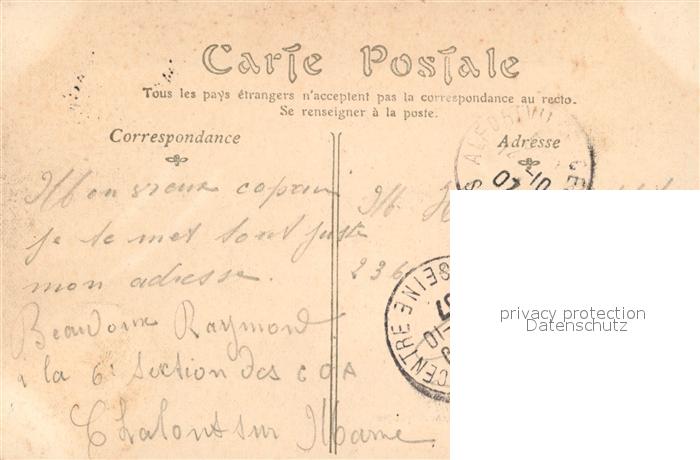 Carte Postale
Tous les pays étrangers n'acceptent pas la correspondance au recto.
Se renseigner à la poste.
Correspondance
Adresse
Mon vieux copain
je te met tout juste
mon adresse.
Beaudoux Raymond
à la 6e Section des C O A
Chalons sur Marne
M.
236
ALFORTVILLE
CENTRE
SEINE
privacy protection
Datenschutz